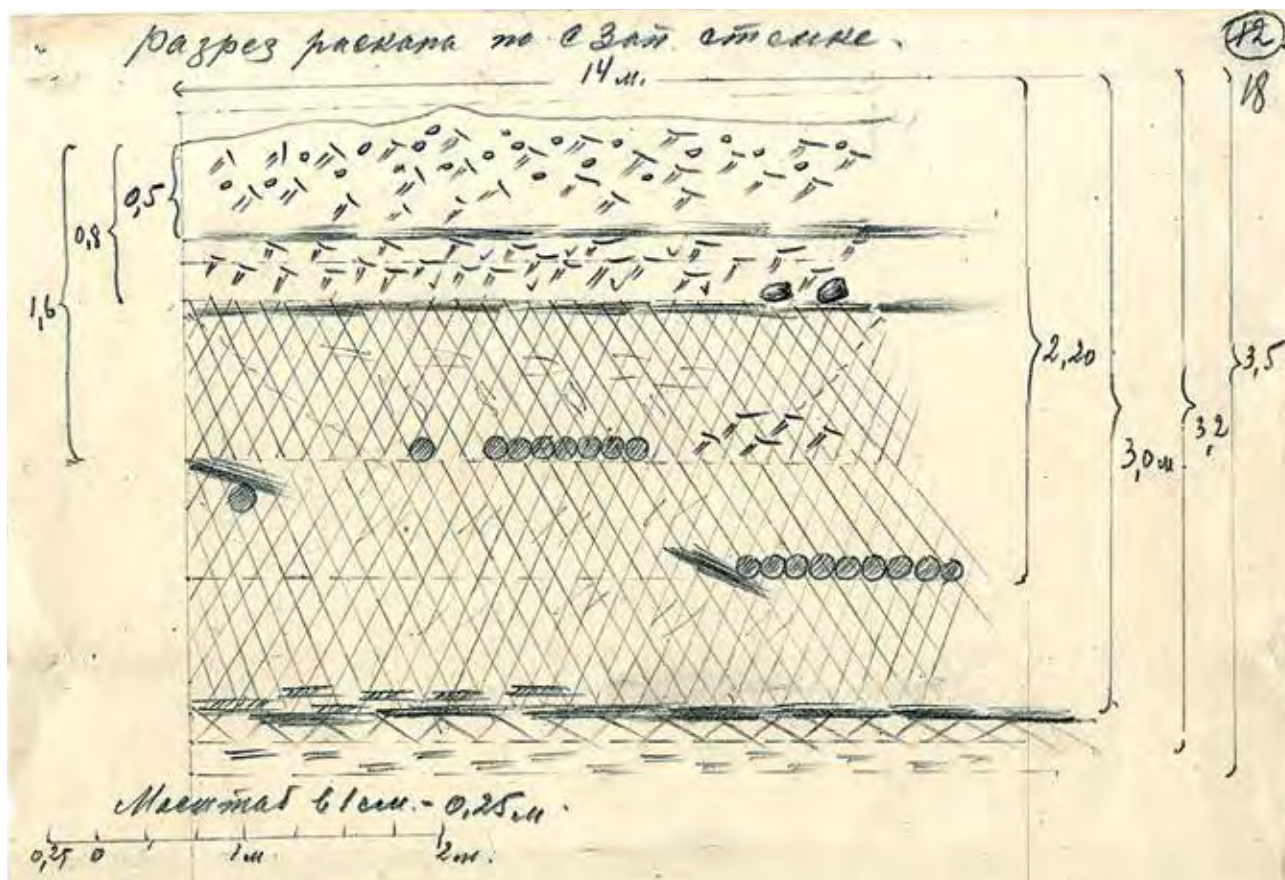 разрез раскопа по с Зап. стенке.
12
18
14 м.
0,5
0,8
1,6
2,20
3,0 м
3,2
3,5
Масштаб в 1 см. - 0,25 м.
0,25 0 1 м. 2 м.